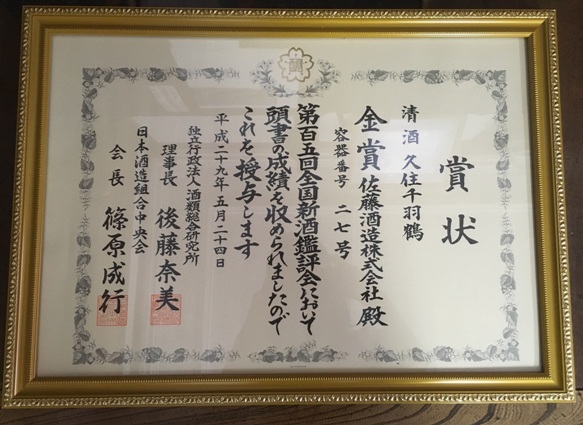 賞状
清酒 久住千羽鶴
金賞 佐藤酒造株式会社 殿
容器番号 二七号
第百五回全国新酒鑑評会において
頭書の成績を収められましたので
これを授与します
平成二十九年五月二十四日
独立行政法人 酒類総合研究所
理事長 後藤奈美
日本酒造組合中央会
会長 篠原成行